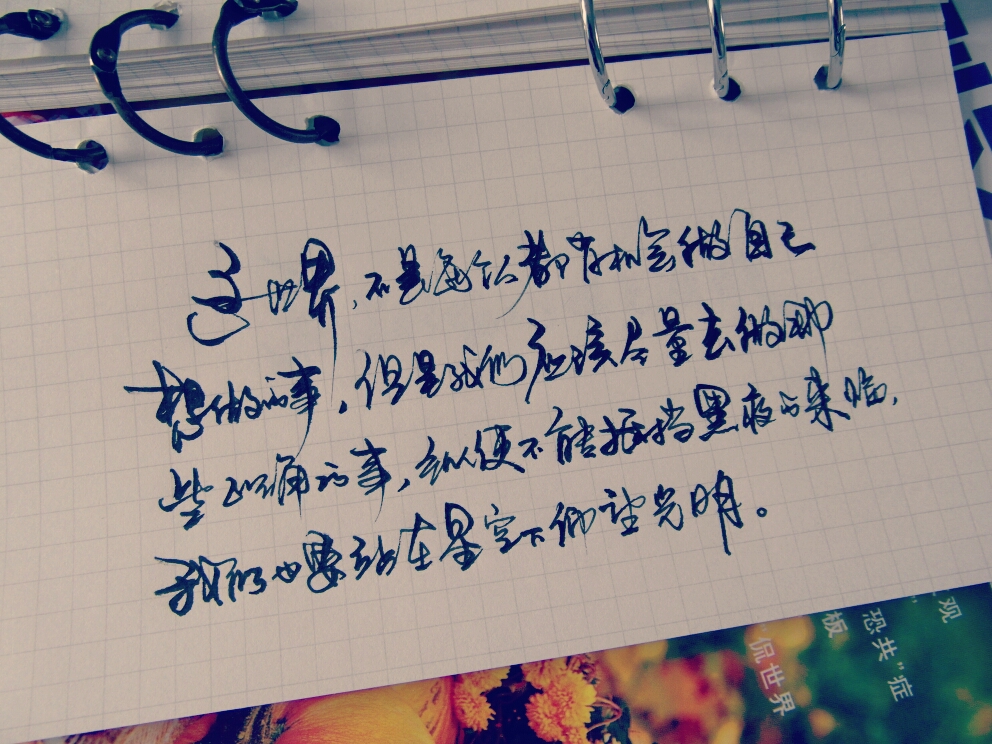 这世界，不是每个人都有机会做自己
想做的事，但是我们应该尽量去做那
些正确的事，纵使不能抵挡黑夜的来临，
我们也要站在星空下仰望光明。
观
恐共"症
板
"侃世界